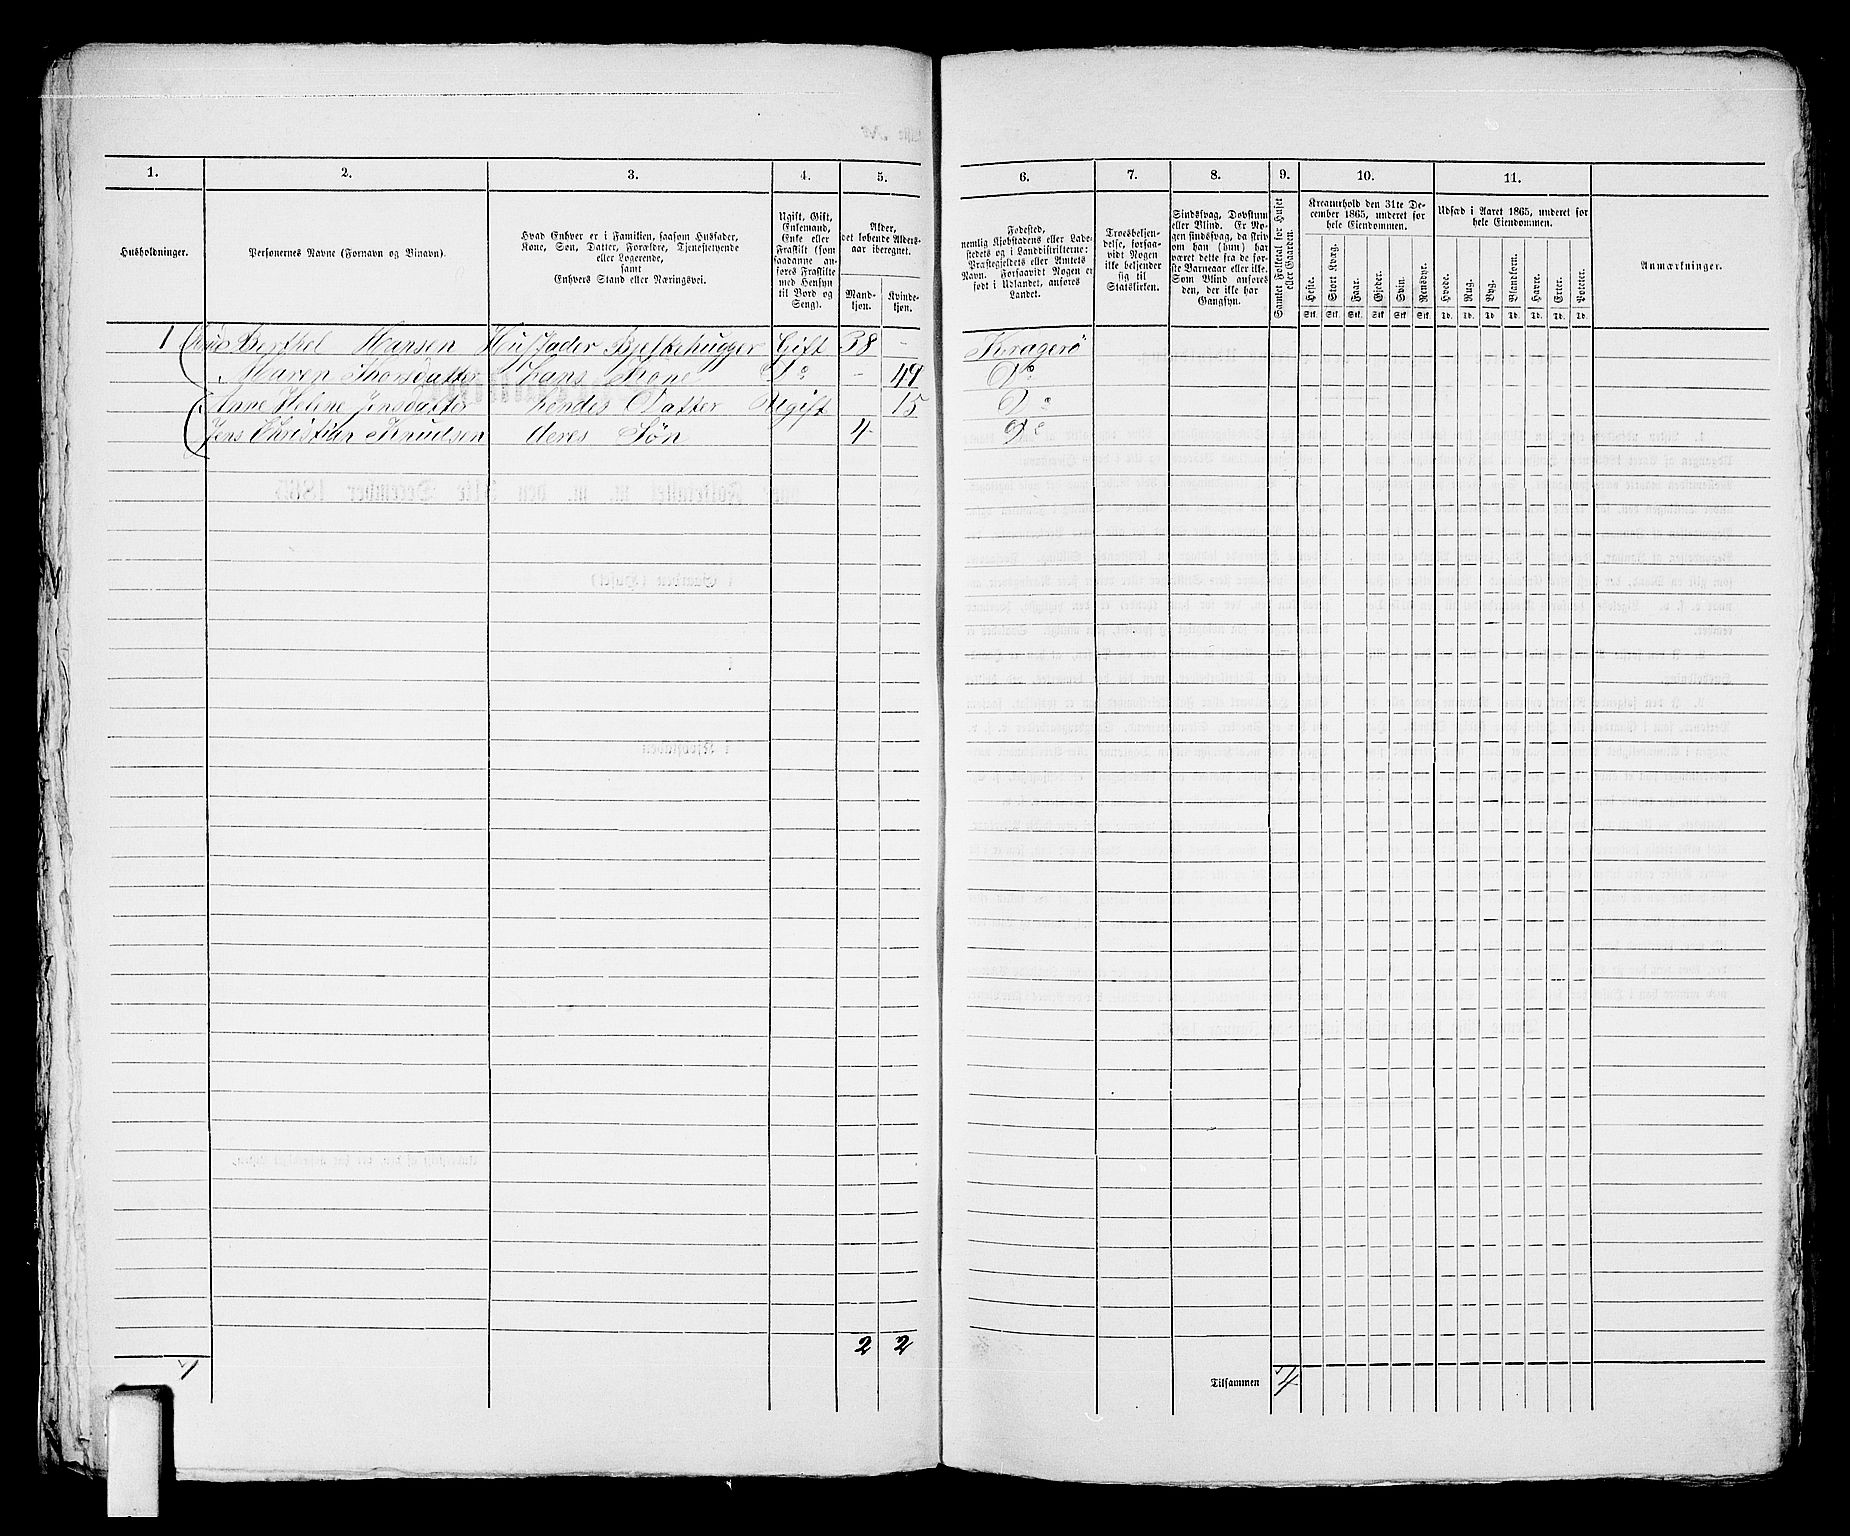 1. 2. 3. 4. 5. 6. 7. 8. 9. 10. 11.
Husholdninger.
Personernes Navne (Fornavn og Vinavn).
Hvad Enhver er i Familien, saasom Husfader,
Kone, Søn, Datter, Forældre, Tjenestetyende
eller Logerende,
samt
Enhvers Stand eller Næringsvei.
Ugift, Gift,
Enkemand,
Enke eller
Fraskilt (som
saadanne an-
føres Fraskilte
med Hensyn
til Bord og
Seng).
Alder,
det løbende Alders-
aar iberegnet.
Mand-
kjøn.
Kvinde-
kjøn.
Fødested,
nemlig Kjøbstadens eller Lade-
stedets og i Landdistrikterne:
Præstegjeldets eller Amtets
Navn. Forsaavidt Nogen er
født i Udlandet, anføres
Landet.
Troesbekjen-
delse, forsaa-
vidt Nogen
ikke bekjender
sig til
Statskirken.
Sindssvag, Døvstum
eller Blind. Er No-
gen sindssvag, da skriv
om han (hun) har
været dette fra de før-
ste Barneaar eller ikke.
Som Blind anføres
den, der ikke har
Gangsyn.
Samlet Folketal for Huset
eller Gaarden.
Kreaturhold den 31te De-
cember 1865, underet for
hele Eiendommen.
Heste. Stort Kvæg. Faar. Gjeder. Svin. Rensdyr.
Stk. Stk. Stk. Stk. Stk. Stk.
Udsæd i Aaret 1865, underet for
hele Eiendommen.
Hvede. Rug. Byg. Blandkorn. Havre. Erter. Poteter.
Td. Td. Td. Td. Td. Td. Td.
Anmærkninger.
1 Berthel Hansen Husfader Gift 58 - Kragerø
Maren Thorsdatter hans Kone Do - 47 Do
Anne Helene Jensdatter hendes Datter Ugift 15 Do
Jens Christian Knudsen deres Søn 4 Do
2 2
1
Tilsammen 4